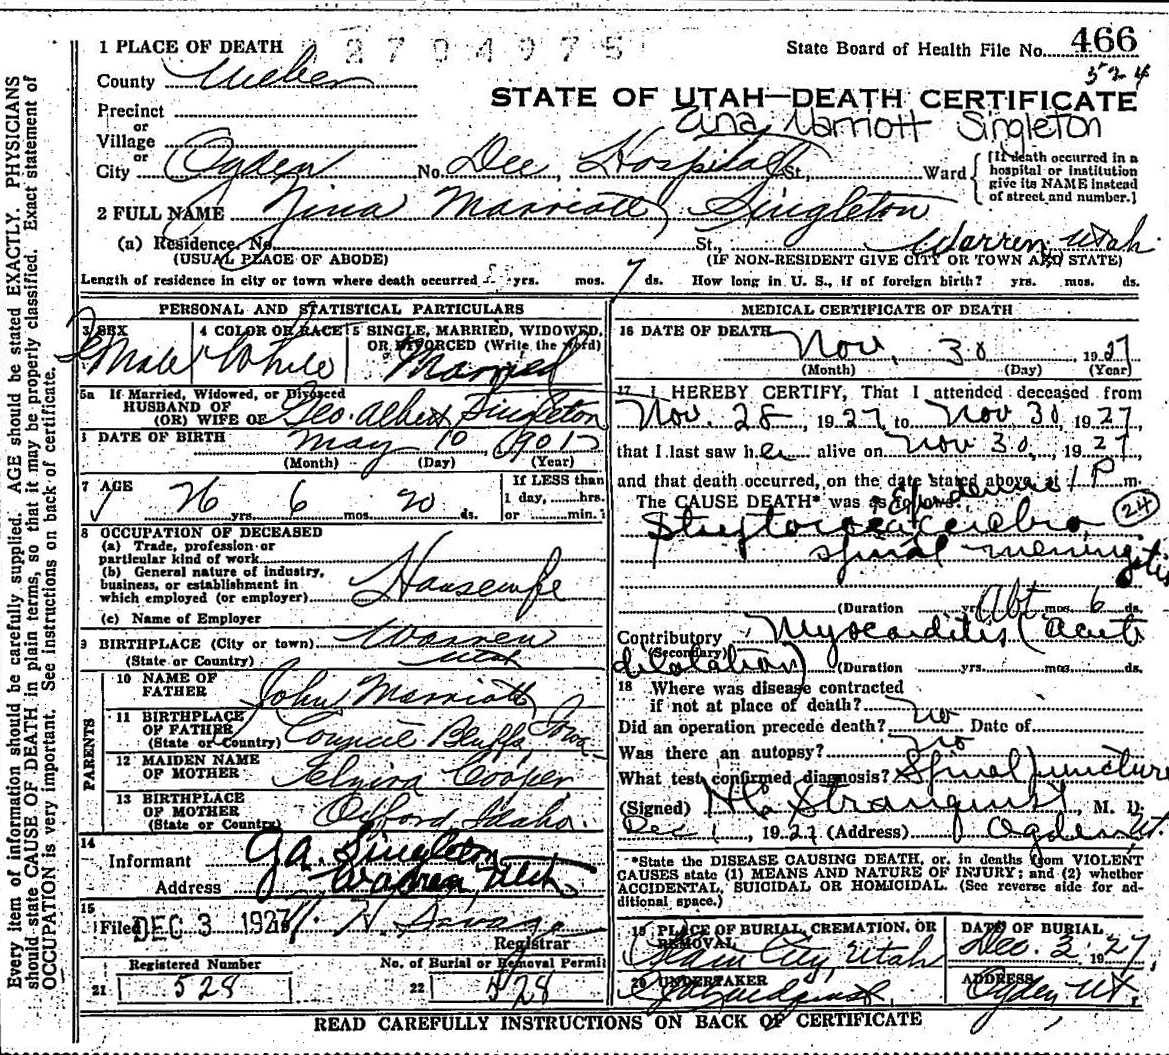 2794975
State Board of Health File No. 466
524
1 PLACE OF DEATH
County Weber
STATE OF UTAH—DEATH CERTIFICATE
Precinct
or
Village
or
Marriott Singleton
City Ogden No. Dee Hospital St., Ward
[If death occurred in a hospital or institution give its NAME instead of street and number.]
2 FULL NAME Zina Marriott Singleton
(a) Residence, No. St., Warren Utah
(USUAL PLACE OF ABODE) (IF NON-RESIDENT GIVE CITY OR TOWN AND STATE)
Length of residence in city or town where death occurred yrs. mos. 7 ds. How long in U. S., if of foreign birth? yrs. mos. ds.
PERSONAL AND STATISTICAL PARTICULARS
3 SEX
FeMale
4 COLOR OR RACE
White
5 SINGLE, MARRIED, WIDOWED, OR DIVORCED (Write the word)
Married
5a If Married, Widowed, or Divorced
HUSBAND OF
(OR) WIFE OF Geo. Albert Singleton
6 DATE OF BIRTH May 10, 1901
(Month) (Day) (Year)
7 AGE 26 yrs. 6 mos. 20 ds.
If LESS than 1 day, hrs. or min.?
8 OCCUPATION OF DECEASED
(a) Trade, profession or particular kind of work
(b) General nature of industry, business, or establishment in which employed (or employer) Housewife
(c) Name of Employer
9 BIRTHPLACE (City or town) Warren
(State or Country) Utah
PARENTS
10 NAME OF FATHER John Marriott
11 BIRTHPLACE OF FATHER (State or Country) Council Bluffs, Iowa
12 MAIDEN NAME OF MOTHER Elvira Cooper
13 BIRTHPLACE OF MOTHER (State or Country) Oxford Idaho.
14
Informant G.A. Singleton
Address Warren, Utah
15
Filed DEC 3 1927
Registrar
Registered Number
21 528
No. of Burial or Removal Permit
22 528
MEDICAL CERTIFICATE OF DEATH
16 DATE OF DEATH Nov. 30, 1927
(Month) (Day) (Year)
17 I HEREBY CERTIFY, That I attended deceased from
Nov. 28, 1927 to Nov 30, 1927
that I last saw her alive on Nov 30, 1927
and that death occurred, on the date stated above, at 1 P m.
The CAUSE DEATH* was as follows:
24
Streptococci cerebro
spinal meningitis
(Duration yrs. Abt mos. 6 ds.
Contributory Myocarditis (acute
(Secondary)
dilatation) (Duration yrs. mos. ds.
18 Where was disease contracted
if not at place of death?
Did an operation precede death? no Date of
Was there an autopsy? no
What test confirmed diagnosis? Spinal puncture
(Signed) Stranquist, M. D.
Dec 1, 1927 (Address) Ogden Ut.
*State the DISEASE CAUSING DEATH, or, in deaths from VIOLENT CAUSES state (1) MEANS AND NATURE OF INJURY; and (2) whether ACCIDENTAL, SUICIDAL OR HOMICIDAL. (See reverse side for additional space.)
19 PLACE OF BURIAL, CREMATION, OR REMOVAL
Plain City, Utah
DATE OF BURIAL
Dec. 3 1927
20 UNDERTAKER
ADDRESS
Ogden, Ut.
READ CAREFULLY INSTRUCTIONS ON BACK OF CERTIFICATE
Every item of information should be carefully supplied. AGE should be stated EXACTLY. PHYSICIANS
should state CAUSE OF DEATH in plain terms, so that it may be properly classified. Exact statement of
OCCUPATION is very important. See instructions on back of certificate.